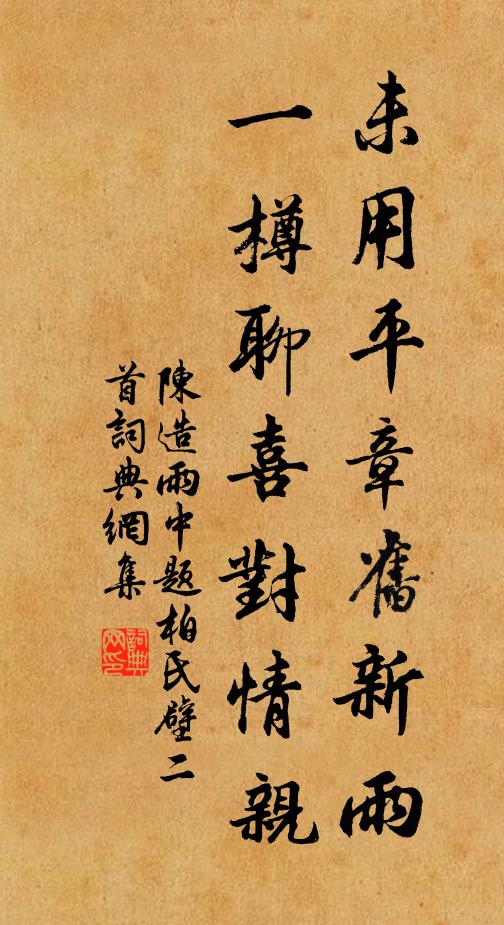 未用平章舊新雨
一樽聊喜對情親
陳造雨中題柏氏壁二
首詞典網集
詞典
网印